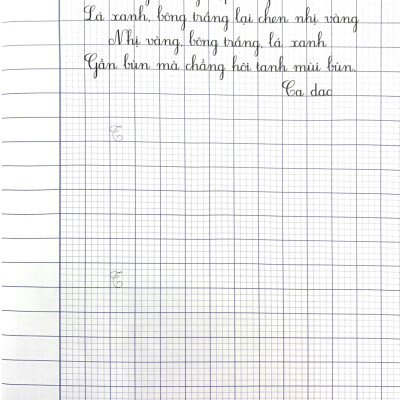 Lá xanh, bông trắng lại chen nhị vàng
Nhị vàng, bông trắng, lá xanh
Gần bùn mà chẳng hôi tanh mùi bùn.
Ca dao
T
T